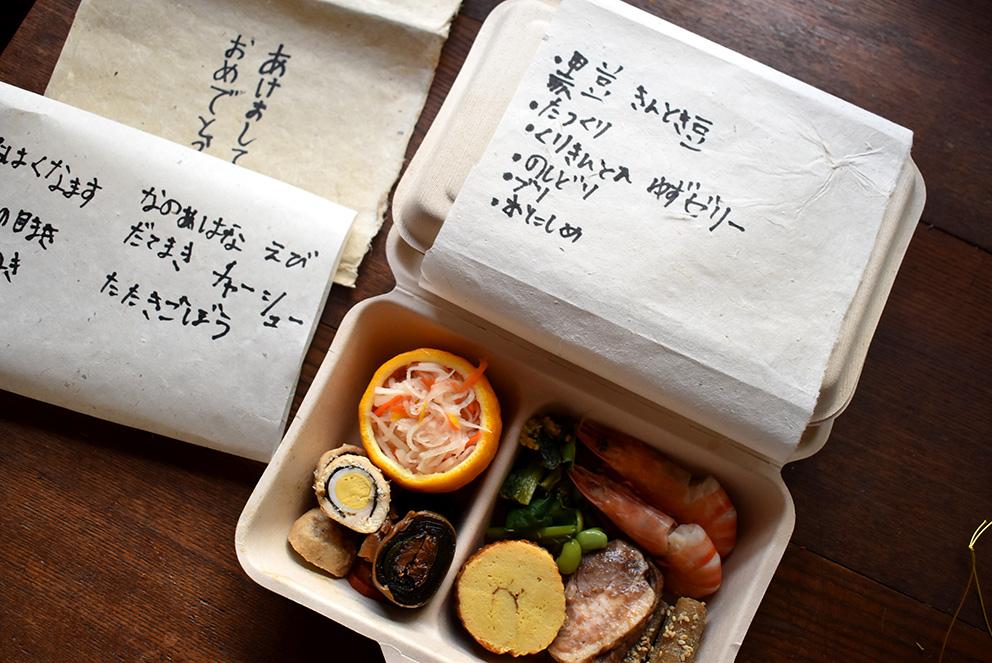 あけまして
おめでとう
なのおはな えび
だてまき チャーシュー
たたきごぼう
なます
の目まき
き
・黒豆 きんとき豆
・たつくり
・くりきんとん ゆずゼリー
・のしどり
・ブリ
・おにしめ